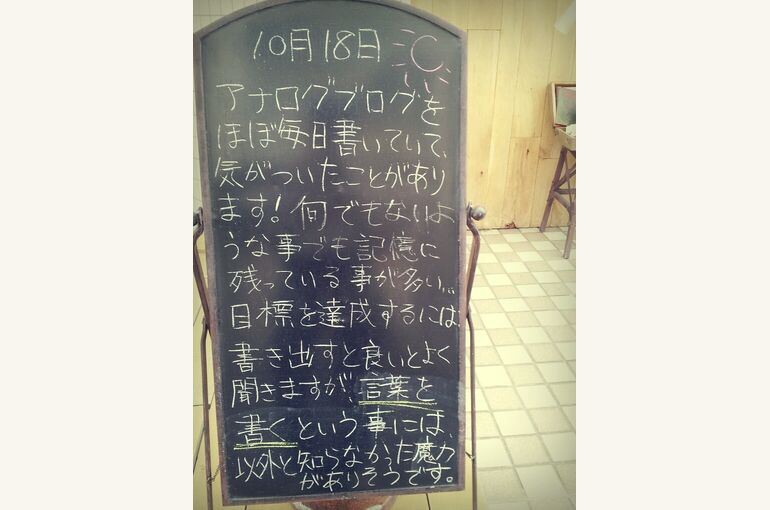 10月18日
アナログブログを
ほぼ毎日書いていて、
気がついたことがあり
ます!何でもないよ
うな事でも記憶に
残っている事が多い…
目標を達成するには、
書き出すと良いとよく
聞きますが、言葉を
書くという事には、
以外と知らなかった魔力
がありそうです。